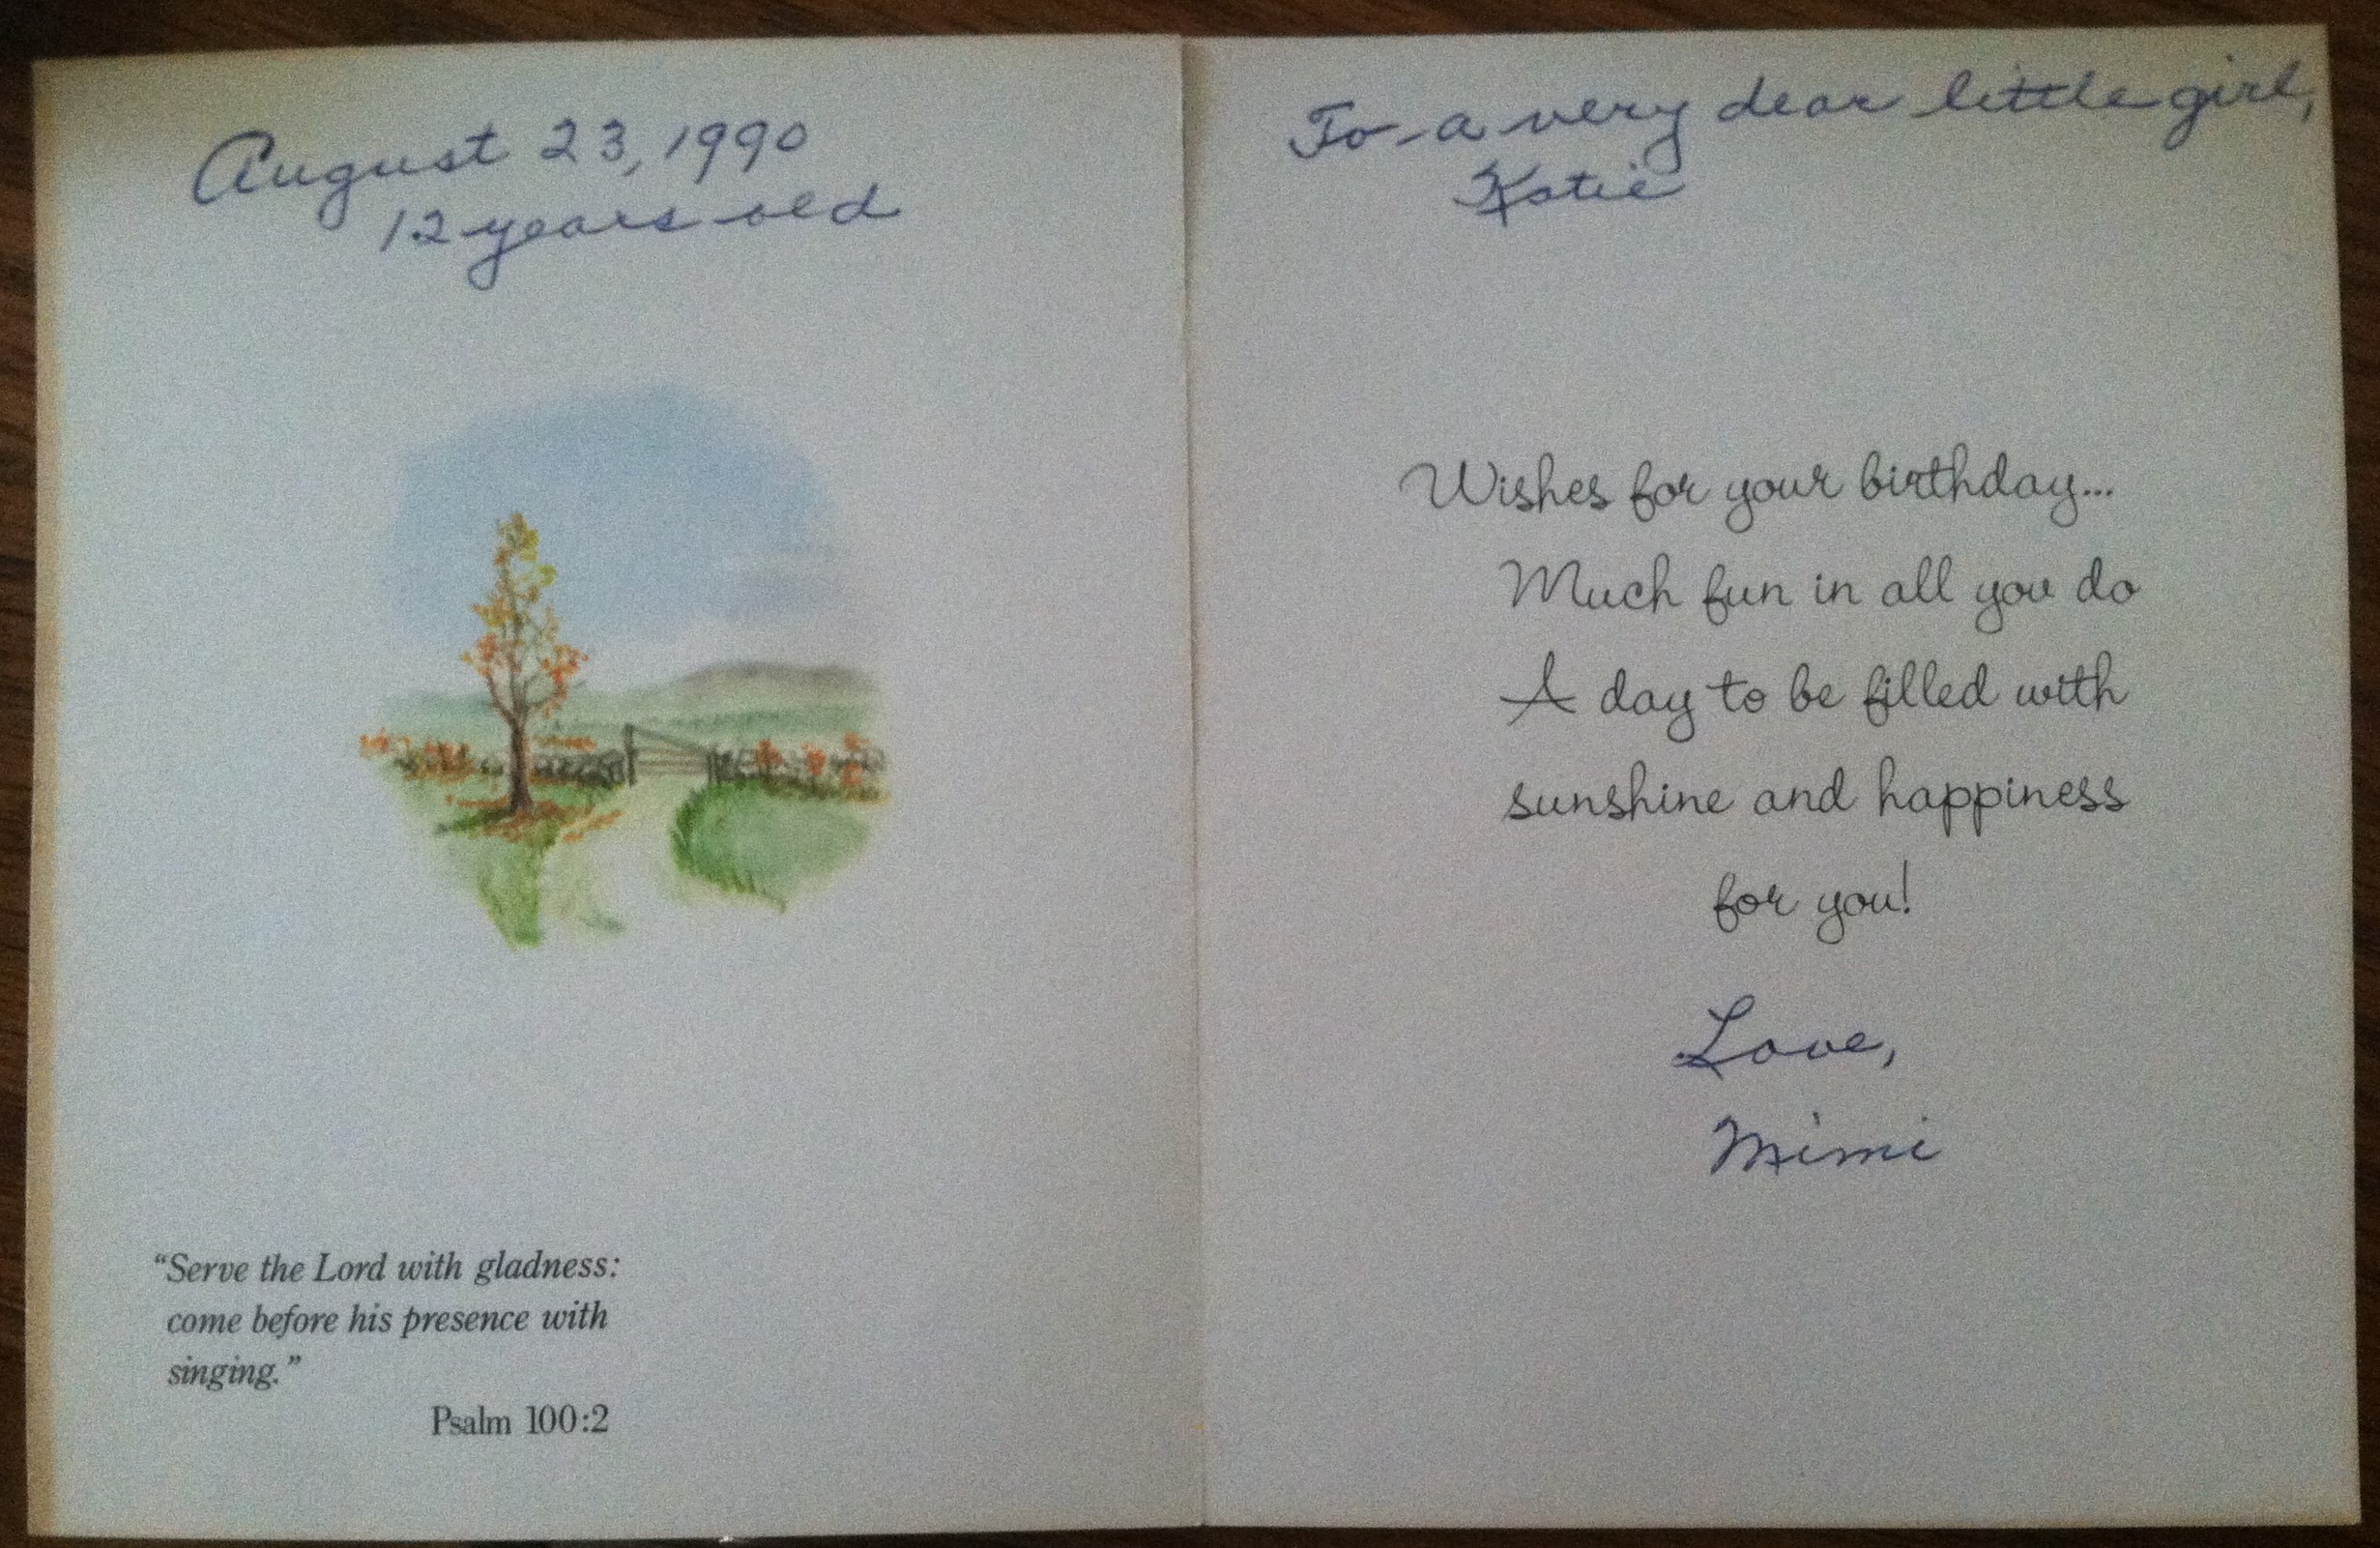 August 23, 1990
12 years old
"Serve the Lord with gladness:
come before his presence with
singing."
Psalm 100:2
To a very dear little girl,
Katie
Wishes for your birthday...
Much fun in all you do
A day to be filled with
sunshine and happiness
for you!
Love,
Mimi